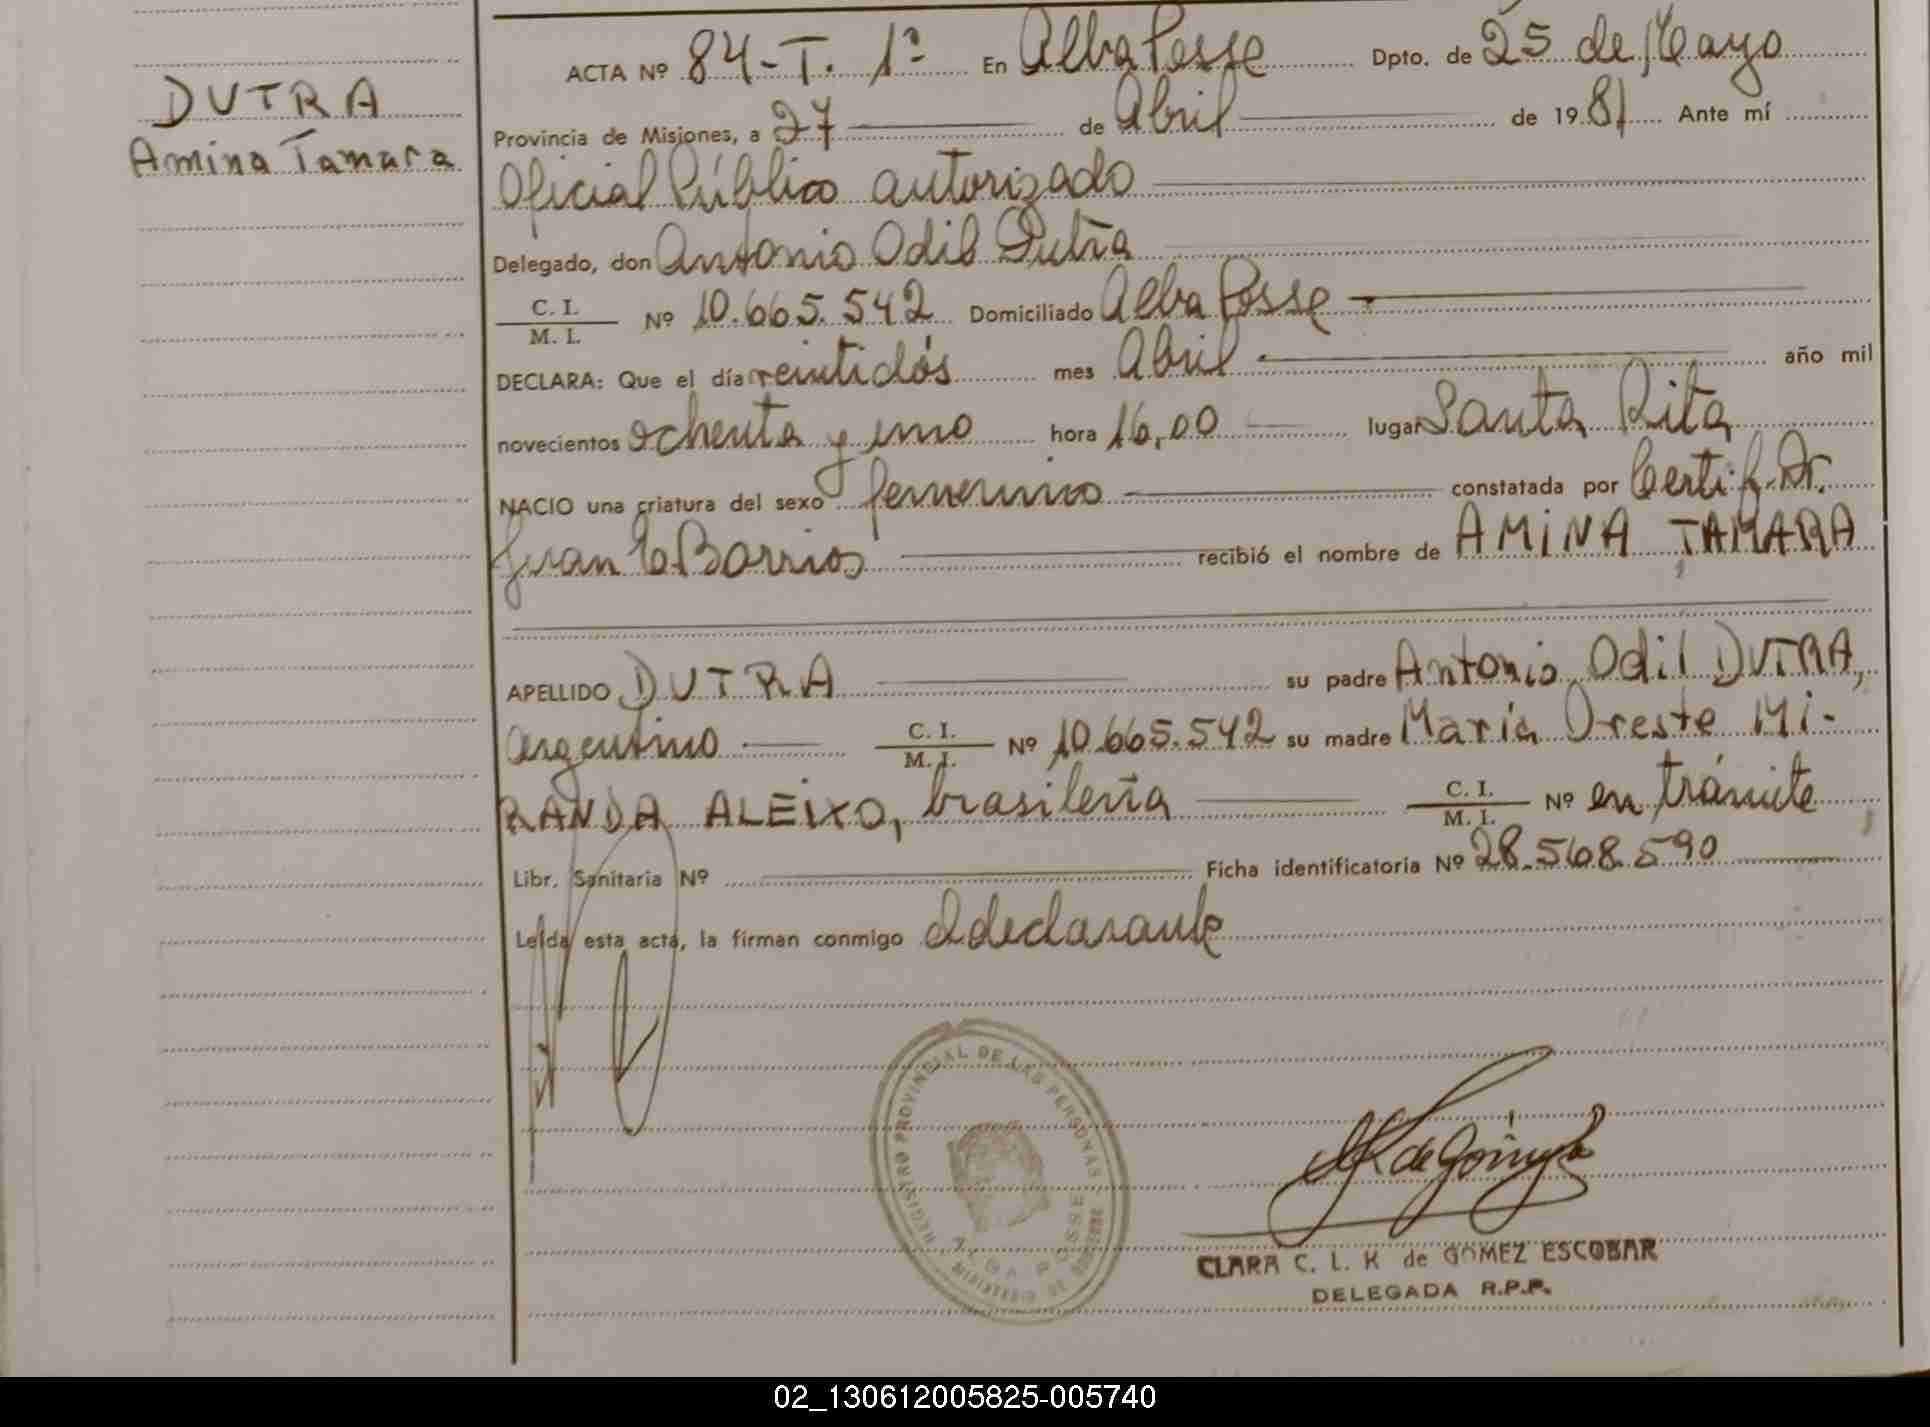 DUTRA
Amina Tamara
ACTA Nº 84-T. 1ª En Alba Posse Dpto. de 25 de Mayo
Provincia de Misiones, a 27 de Abril de 1981 Ante mí
Oficial Público autorizado
Delegado, don Antonio Odil Dutra
C. I. / M. I. Nº 10.665.542 Domiciliado Alba Posse
DECLARA: Que el día veintidós mes Abril año mil
novecientos ochenta y uno hora 16,00 lugar Santa Rita
NACIO una criatura del sexo femenino constatada por Certif. Dr.
Juan C Barrios recibió el nombre de AMINA TAMARA
APELLIDO DUTRA su padre Antonio Odil DUTRA,
argentino C. I. / M. I. Nº 10.665.542 su madre María Oreste MI-
RANDA ALEIXO, brasileña C. I. / M. I. Nº en trámite
Libr. Sanitaria Nº Ficha identificatoria Nº 28.568.590
Leída esta acta, la firman conmigo el declarante
REGISTRO PROVINCIAL DE LAS PERSONAS
ALBA POSSE
MINISTERIO DE GOBIERNO
CLARA C. L. K de GOMEZ ESCOBAR
DELEGADA R.P.P.
02_130612005825-005740